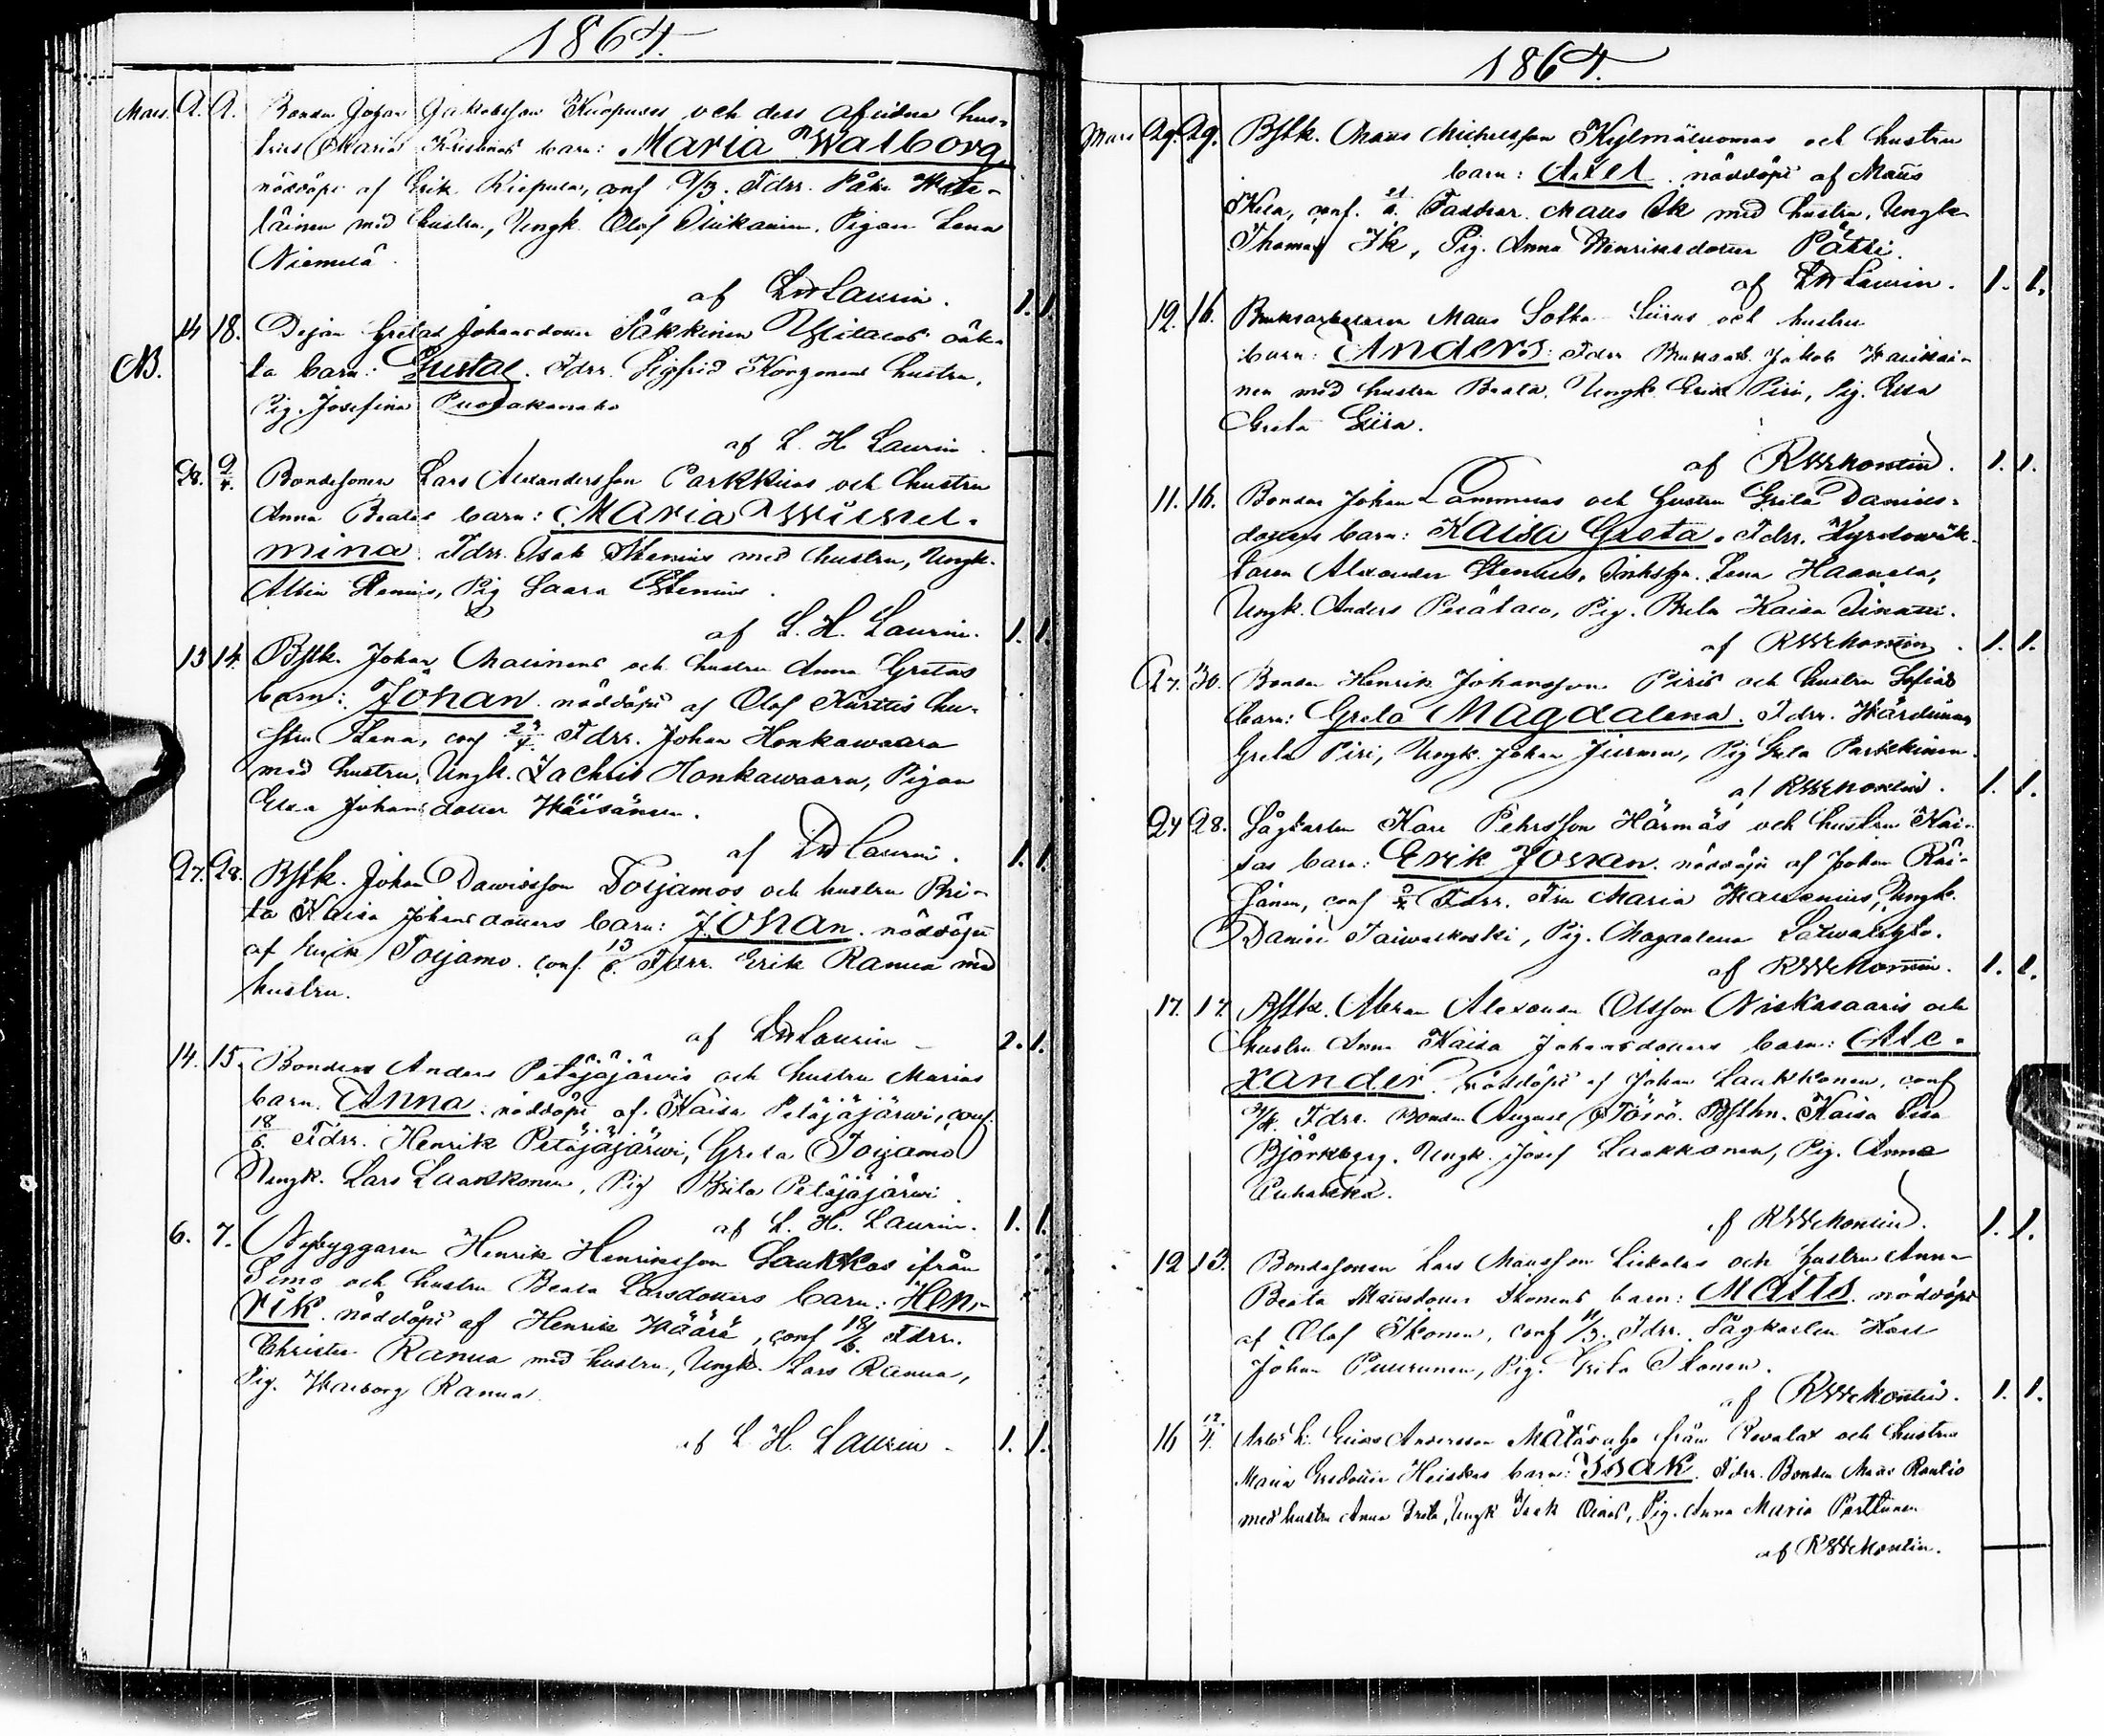 1864.
Mars. 2. 2. Bonden Johan Jakobsson och dess afvidna hus-
trus Maria barn: Maria Walborg
nöddöpt af Erik Riepula, conf 9/3. Fdrr.
läinen med hustru, Ungk. Olof Pigan Lena
Niemelä.
af LH Laurin. 1. 1.
14 18. Pigan Gretas Johansdotter Säkkinen oäk-
NB. ta barn: Gustaf. Fdrr. Sigfrid Korgonens hustru,
Pig. Josefina
af L. H. Laurin
28. 2/4. Bondesonen Lars Alexandersson Parkkilas och hustru
Anna Beatas barn: Maria Wilhel-
mina. Fdrr. Isak Stenius med hustru, Ungk.
Albin Stenius, Pig Saara Stenius.
af L. H. Laurin. 1. 1.
13 14. Bstk. Johan Malinens och hustru Anna Gretas
barn: Johan. nöddöpt af Olof Kurttis hu-
stru Lena, conf Fdrr. Johan Honkawaara
med hustru, Ungk. Zachris Honkawaara, Pigan
Elsa Johansdotter Wäisänen.
af LH Laurin. 1. 1.
27. 28. Bstk. Johan Dawidsson Toljamos och hustru Bri-
ta Kaisa Johansdotters barn: Johan. nöddöpt
af Toljamo. conf. 13/6. Fdrr. Erik Ranua med
hustru.
af LH Laurin 2. 1.
14. 15. Bonden Anders Petäjäjärwis och hustru Marias
barn. Anna. nöddöpt af Kaisa Petäjäjärwi, conf.
18/6. Fdrr. Henrik Petäjäjärwi, Greta Toljamo
Ungk. Lars Laakkonen, Pig Brita Petäjäjärwi.
af L. H. Laurin. 1. 1.
6. 7. Nybyggaren Henrik Henriksson Laukkas ifrån
Simo och hustru Beata Larsdotters barn: Hen-
rik. nöddöpt af Henrik Wäärä, conf 18/6. Fdrr.
Christer Ranua med hustru, Ungk. Lars Ranua,
Pig. Walborg Ranua.
af L. H. Laurin 1. 1.
1864.
Mars 29. 29. Bstk. Mats Michelsson Kylmäluomas och hustru
barn: Axel. nöddöpt af Mats
conf. Faddrar. Mats Ik med hustru, Ungk.
Thomas Ik, Pig. Anna Henriksdotter Pätsi.
af LH Laurin. 1. 1.
12. 16. Bruksarbetaren Mats Sotka-Siiras och hustru
barn: Anders. Fdrr Jakob
nen med hustru Beata, Ungk. Erik Piri, Pig. Elsa
Greta Siira.
af RWMontin. 1. 1.
11. 16. Bonden Johan Lammelas och hustru Greta Daniels-
dotters barn: Kaisa Greta. Fdrr. Kyrkowäk-
taren Alexander Stenius, Lena Haarala,
Ungk. Anders Perätalo, Pig. Brita Kaisa
af RWMontin. 1. 1.
27. 30. Bonden Henrik Johansson Piris och hustru Sofias
barn: Greta Magdalena. Fdrr. Wärdinnan
Greta Piri, Ungk. Johan Jurmu, Pig Greta Parkkinen.
af RWMontin. 1. 1.
24 28. Sågkarlen Karl Pehrsson Härmäs och hustru Kai-
sas barn: Erik Johan. nöddöpt af Johan Räi-
sänen, conf Fdrr. Fru Maria Ungk.
Daniel Taiwalkoski, Pig. Magdalena
af RWMontin. 1. 1.
17. 17. Bstk. Abram Alexander Olsson Niskasaaris och
hustru Anna Kaisa Johansdotters barn: Ale-
xander. nöddöpt af Johan Laakkonen, conf
Fdrr. Bonden August Törrö. Bsthn. Kaisa Lisa
Björkberg, Ungk. Josef Laakkonen, Pig. Anna
Puhakka.
af RWMontin. 1. 1.
12 13. Bondesonen Lars Matsson Liekolas och hustru Anna
Beata Matsdotter Ikonens barn: Matts. nöddöpt
af Olof Ikonen, conf 11/3. Fdrr. Sågkarlen Karl
Johan Puurunen, Pig. Greta Ikonen.
af RWMontin. 1. 1.
16 12/4. Andersson från Revolax och hustru
Maria Heiskas barn: Isak. Fdrr. Bonden Mats Rautio
med hustru Anna Greta, Ungk Isak Oinas, Pig. Anna Maria Perttunen
af RWMontin.